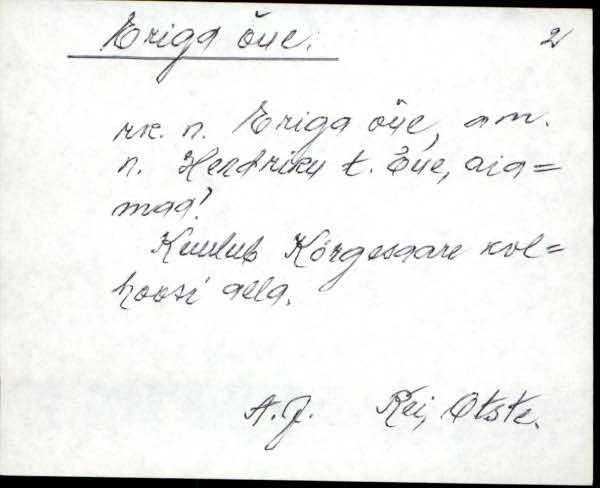 Eriga õue. 2
rk. n. Eriga õue, am.
n. Hendriku t. Õue, aia=
maa!
Kuulub Kõrgesaare kol=
hoosi alla.
A.J. Rei, Otste.